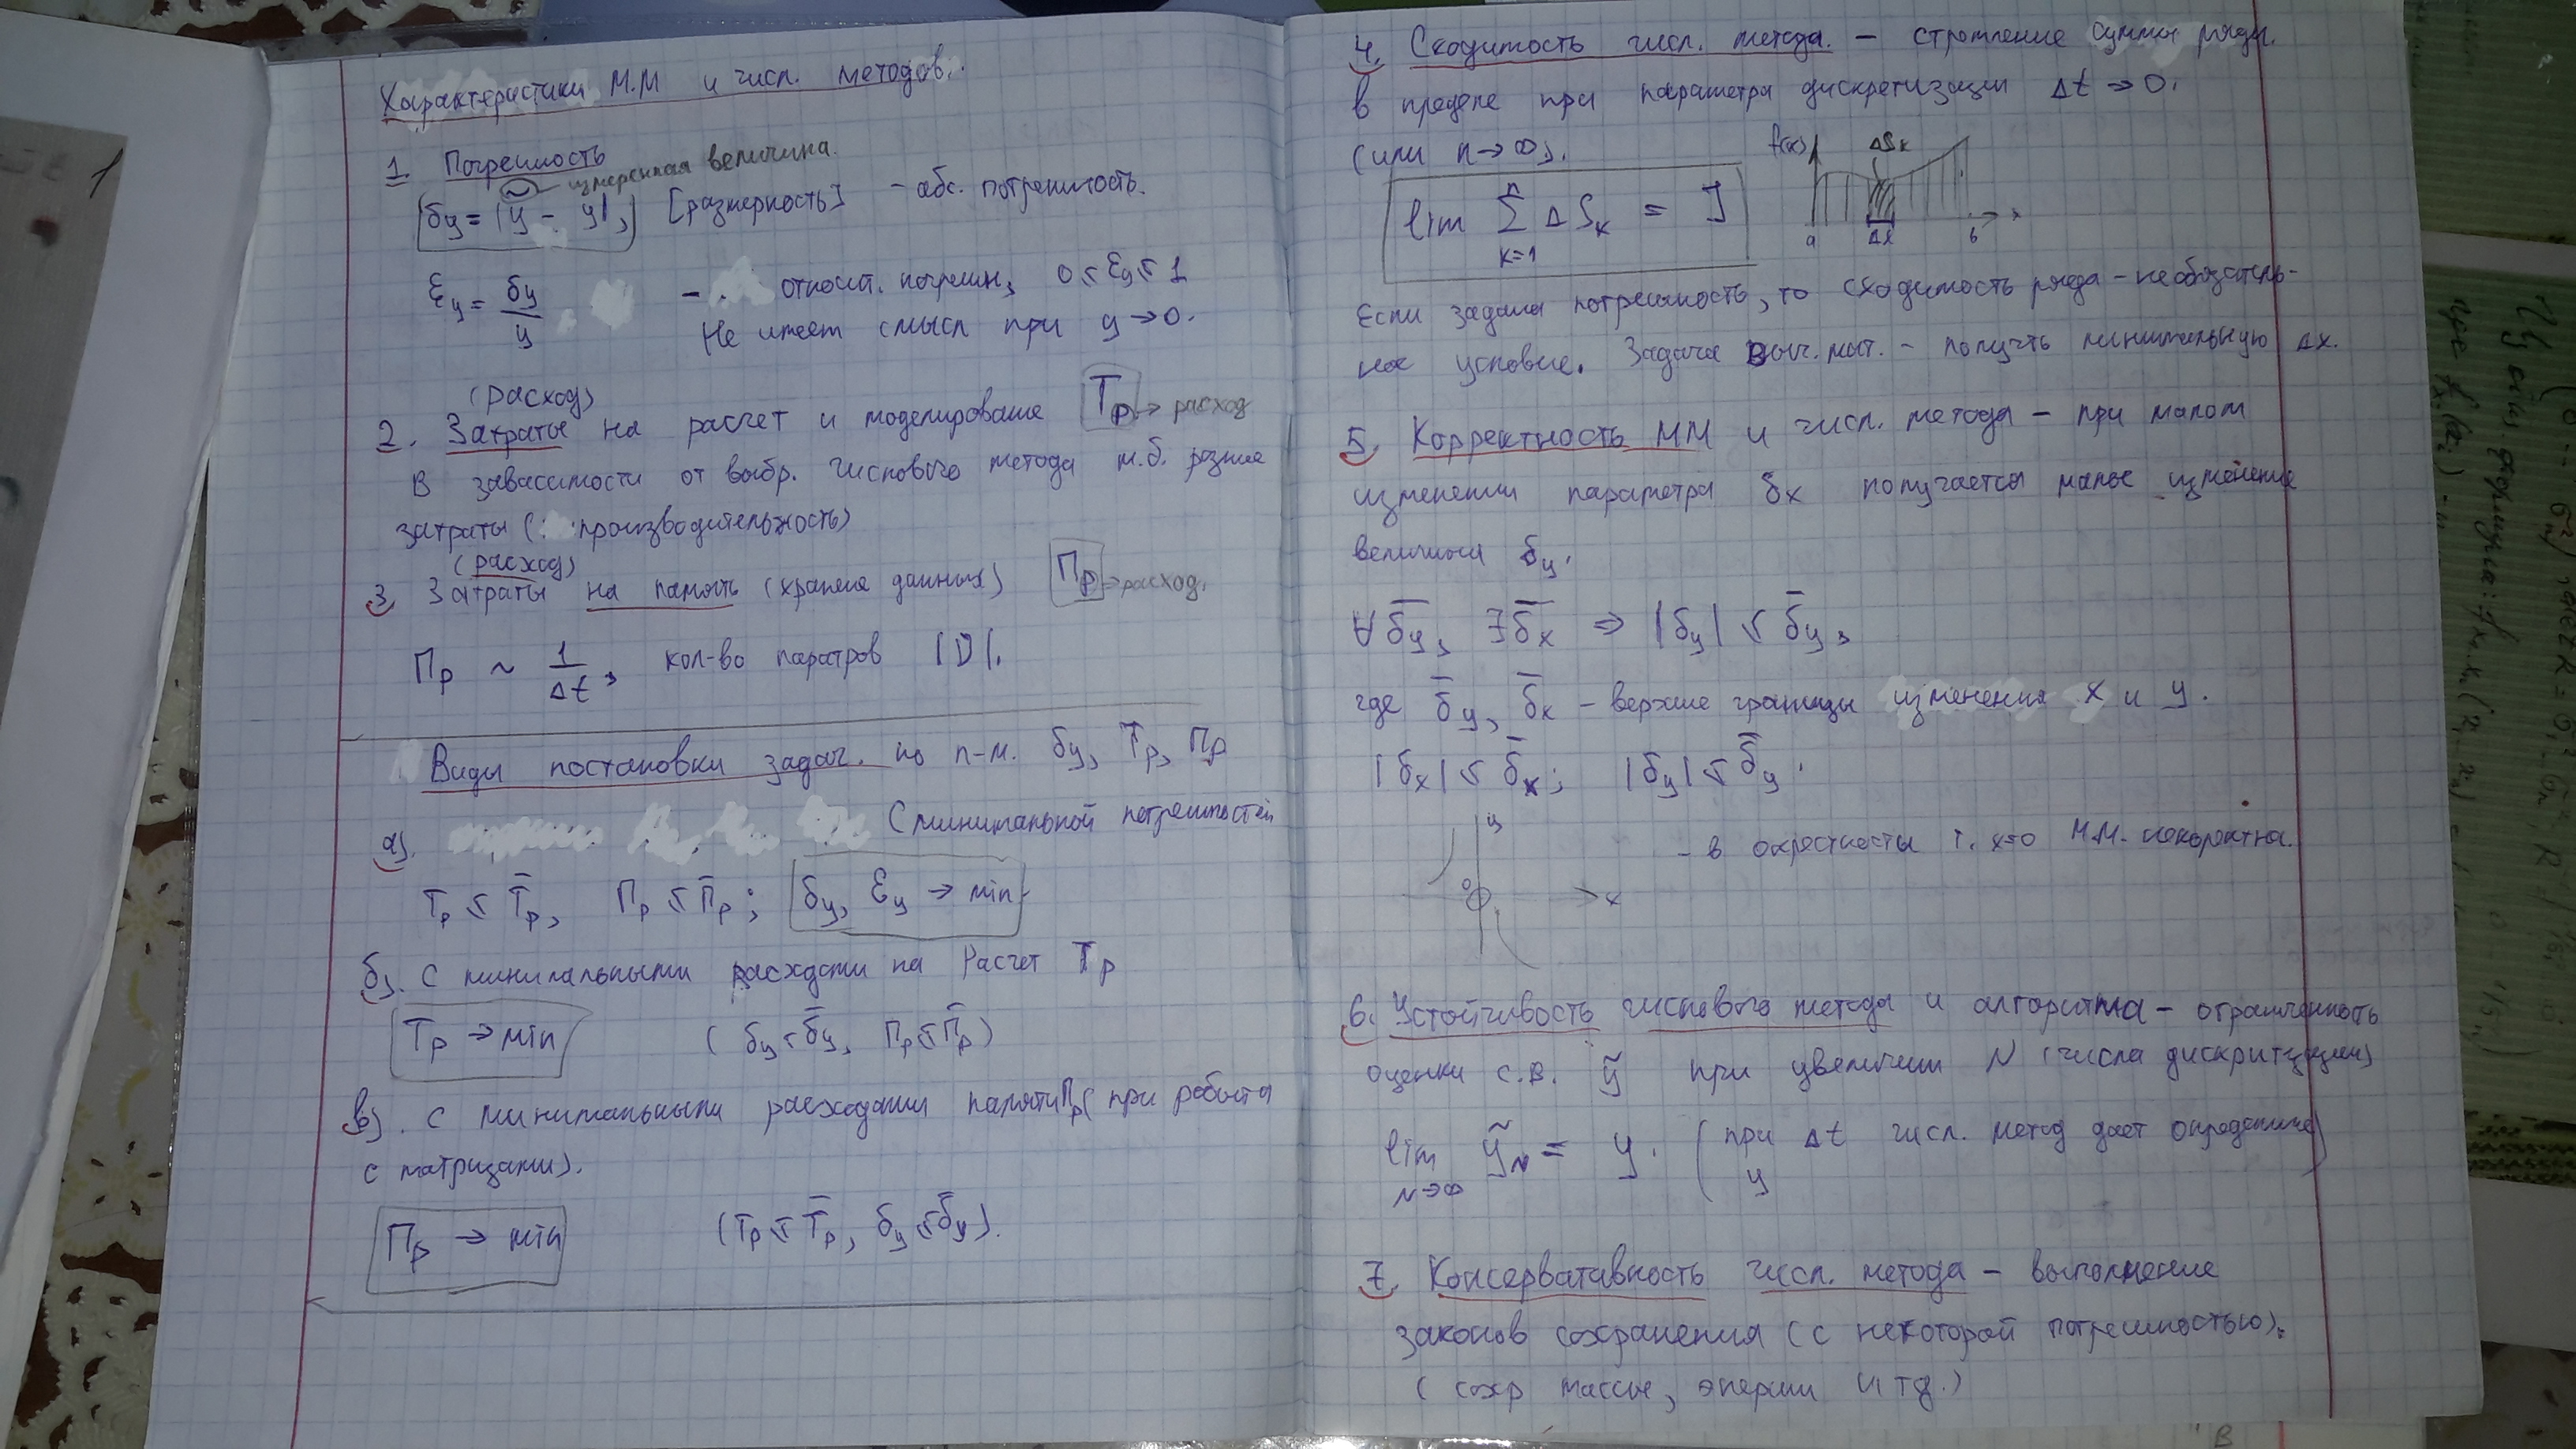 Характеристики М.М и числ. методов.
1. Погрешность
~ — измеренная величина.
δy = |ỹ - y|, [размерность] - абс. погрешность.
εy = δy/y - относит. погрешн, 0 ≤ εy ≤ 1
Не имеет смысл при y → 0.
(расход)
2. Затраты на расчет и моделирование Tр → расход
В завасимости от выбр. числового метода м.б. разные
затраты (производительность)
(расход)
3. Затраты на память (хранение данных) Пр → расход.
Пр ~ 1/Δt, кол-во паратров |D|.
Виды постановки задач. по п-м. δy, Tр, Пр
а). С минимальной погрешностей
Tр ≤ T̄р, Пр ≤ П̄р; δy, εy → min
б). С минимальными расходами на Расчет Tр
Tр → min (δy ≤ δ̄y, Пр ≤ П̄р)
в). С минимальными расходами памяти Пр (при работа
с матрицами).
Пр → min (Tр ≤ T̄р, δy ≤ δ̄y).
4. Сходимость числ. метода. - стремление суммы ряда.
в пределе при параметра дискретизации Δt → 0.
(или n → ∞).
f(x) ΔSk
lim Σ ΔSk = J
n
k=1
a Δx b x
Если задана погрешность, то сходимость ряда - необязатель-
ное условие. Задача выч. мат. - получть минимальную Δx.
5. Корректность ММ и числ. метода - при малом
изменении параметра δx получается малые изменение
величины δy.
∀δ̄y, ∃δ̄x ⇒ |δy| ≤ δ̄y,
где δ̄y, δ̄x - верхние границы изменения x и y.
|δx| ≤ δ̄x; |δy| ≤ δ̄y.
y
0 x
- в окрестности т. x=0 М.М. некоректна.
6. Устойчивость числового метода и алгоритма - ограниченность
оценки с.в. ỹ при увеличии N (числа дискритизции)
lim ỹN = y. (при Δt числ. метод дает определение
N→∞ y)
7. Консерватавность числ. метода - выполнение
законов сохранения (с некоторой погрешностью).
(сохр массы, энергии и тд.)